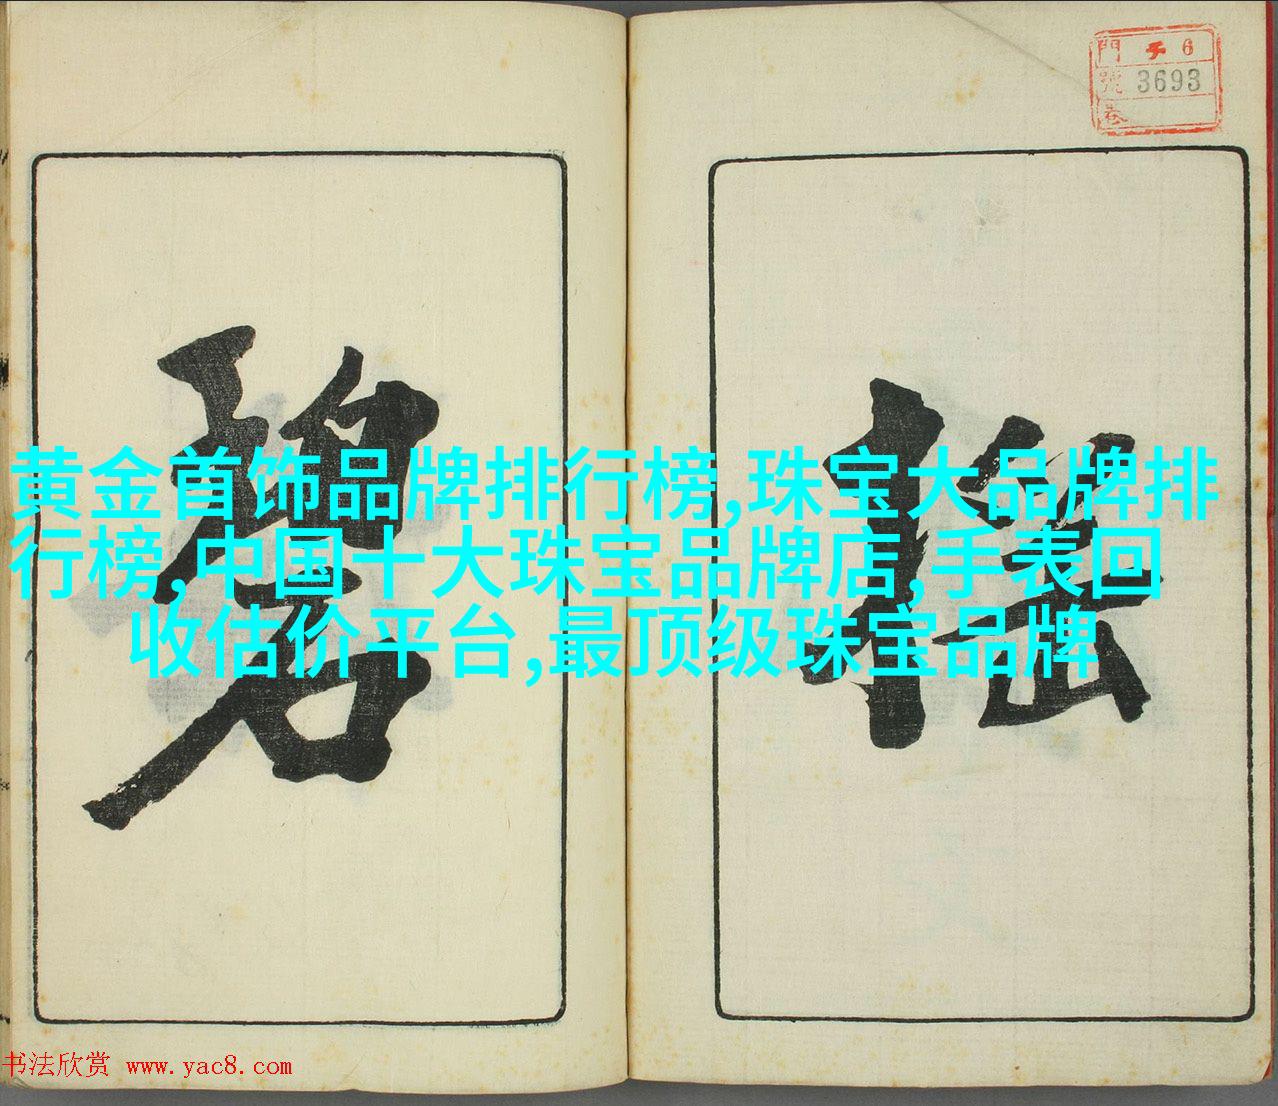 門 チ 6
號 3693
卷
黄金首饰品牌排行榜,珠宝大品牌排
行榜,中国十大珠宝品牌店,手表回
收估价平台,最顶级珠宝品牌
碧
书法欣赏 www.yac8.com